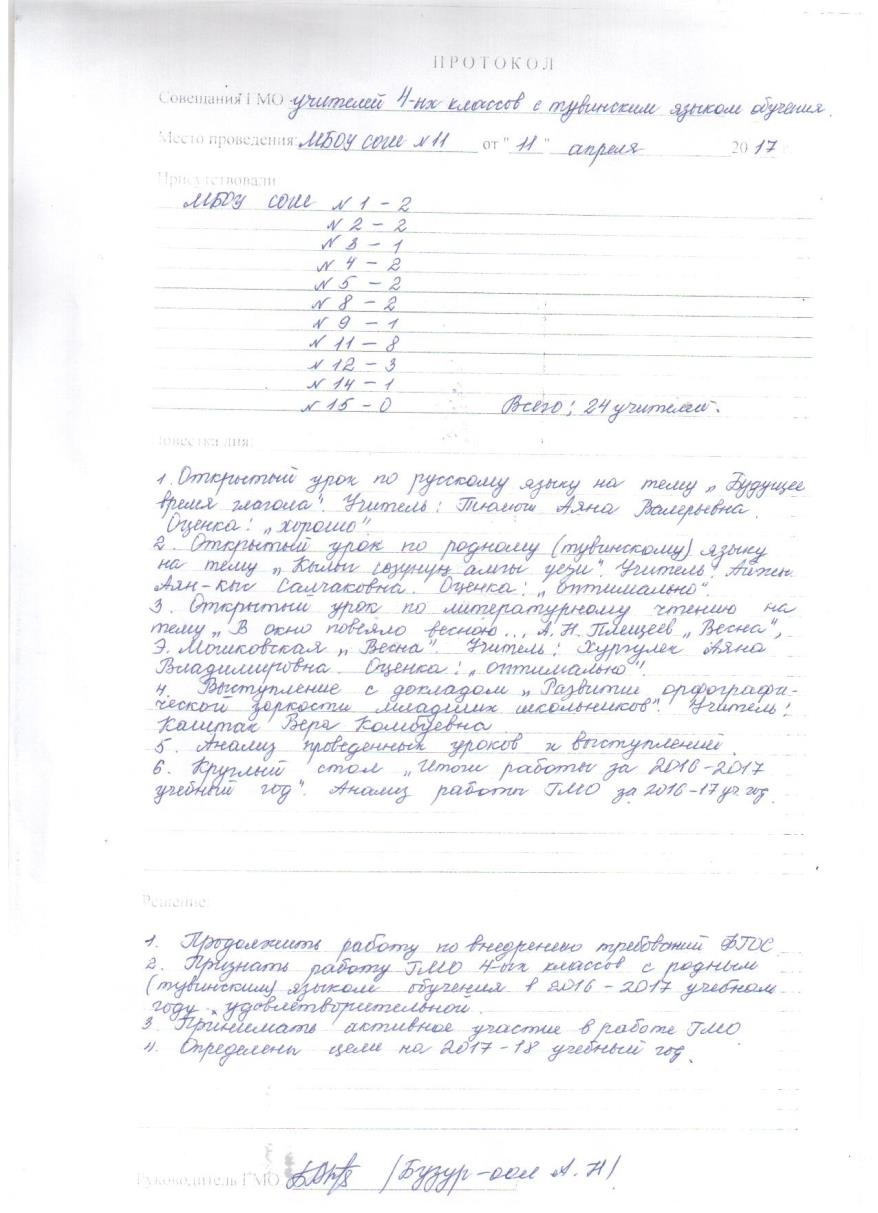 ПРОТОКОЛ
Совещания ГМО учителей 4-ых классов с тувинским языком обучения.
Место проведения: МБОУ СОШ №11 от "11" апреля 2017 г.
Присутствовали
МБОУ СОШ № 1 – 2
№ 2 – 2
№ 3 – 1
№ 4 – 2
№ 5 – 2
№ 8 – 2
№ 9 – 1
№ 11 – 8
№ 12 – 3
№ 14 – 1
№ 15 – 0 Всего: 24 учителей.
Повестка дня:
1. Открытый урок по русскому языку на тему „Будущее
время глагола". Учитель: Тюлюш Аяна Валерьевна.
Оценка: „хорошо"
2. Открытый урок по родному (тувинскому) языку
на тему „Кылыг созунуң амгы үези". Учитель: Айыжы
Аян-кыс Салчаковна. Оценка: „оптимально".
3. Открытый урок по литературному чтению на
тему „В окно повеяло весною..., А.Н. Плещеев „Весна",
Э. Мошковская „Весна". Учитель: Хургулек Аяна
Владимировна. Оценка: „оптимально".
4. Выступление с докладом „Развитие орфографи-
ческой зоркости младших школьников". Учитель:
Каштак Вера Комбуевна
5. Анализ проведенных уроков и выступлений.
6. Круглый стол „Итоги работы за 2016-2017
учебный год". Анализ работы ГМО за 2016-17 уч. год.
Решение:
1. Продолжить работу по внедрению требований ФГОС
2. Признать работу ГМО 4-ых классов с родным
(тувинским) языком обучения в 2016-2017 учебном
году „удовлетворительной.
3. Принимать активное участие в работе ГМО
4. Определены цели на 2017-18 учебный год.
Руководитель ГМО /Бузур-оол А.Н/